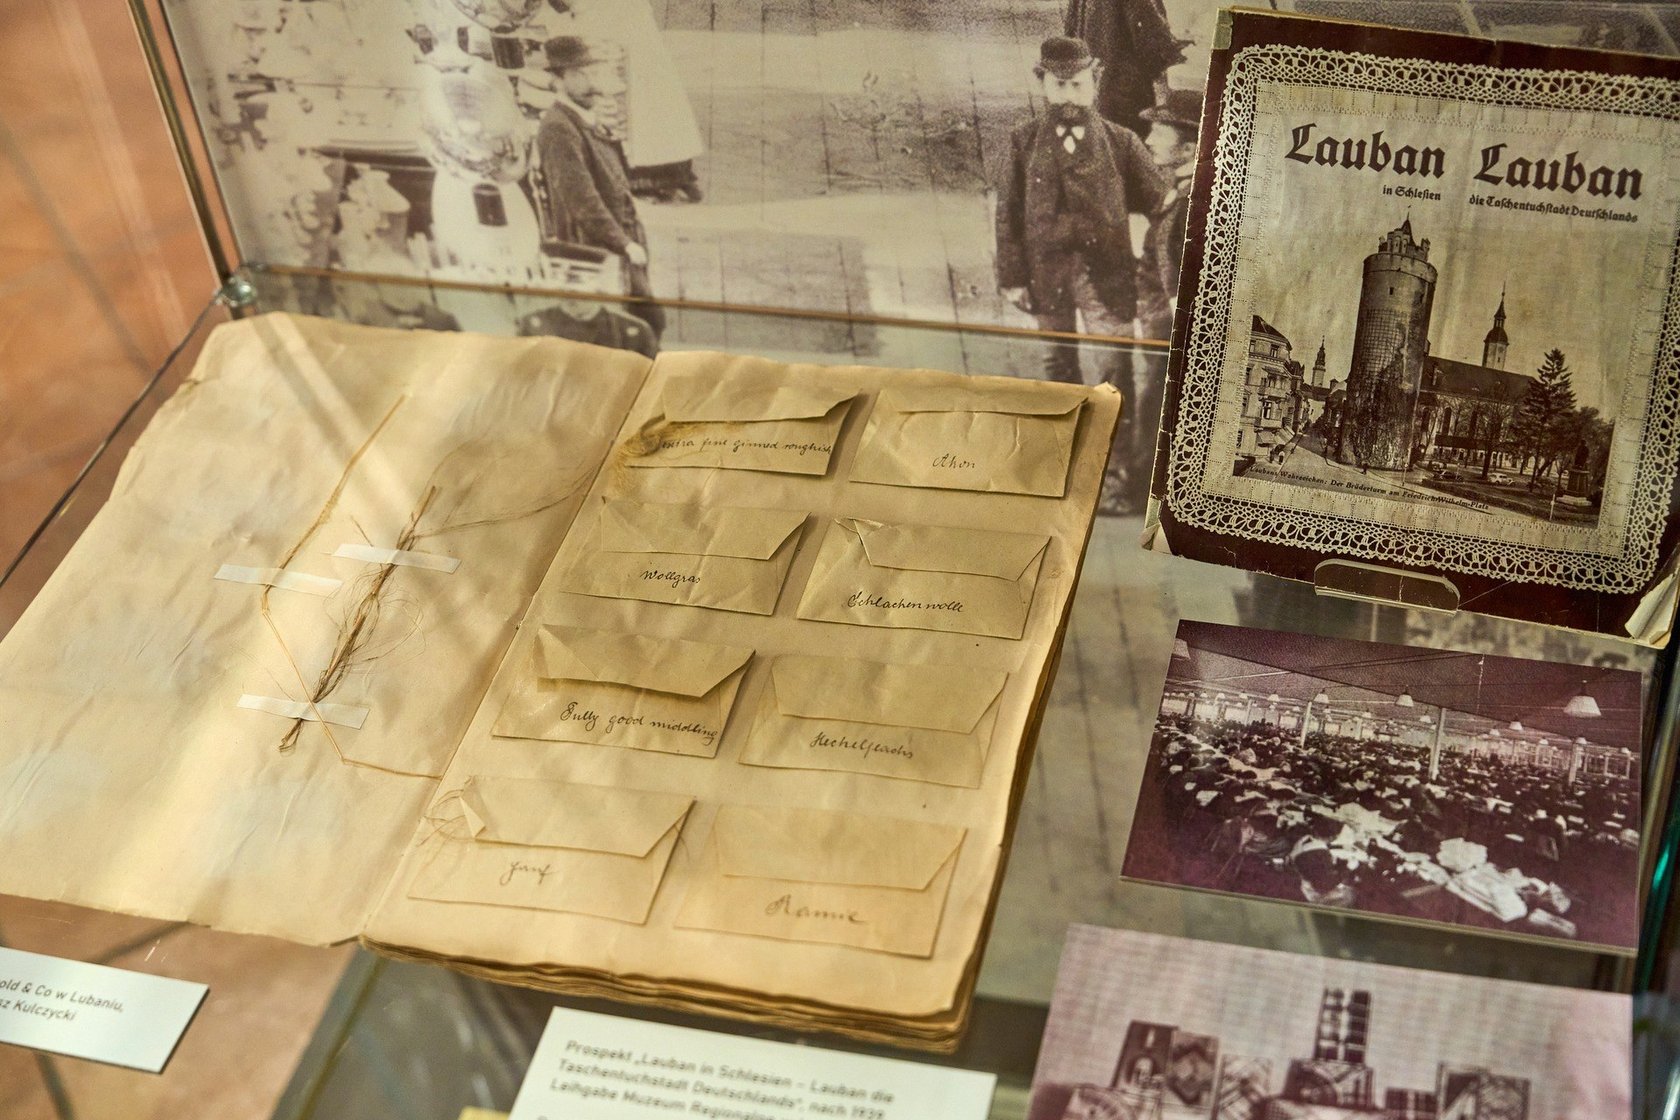 Lauban
in Schlesien
Lauban
die Taschentuchstadt Deutschlands
Laubans Wahrzeichen: Der Brüderturm am Friedrich-Wilhelm-Platz
extra fine ginned roughish
Ahon
Wollgras
Schlackenwolle
Fully good middling
Hechelflachs
Hanf
Ramie
old & Co w Lubaniu,
sz Kulczycki
Prospekt „Lauban in Schlesien – Lauban die
Taschentuchstadt Deutschlands“, nach 1939
Leihgabe Muzeum Regionalne